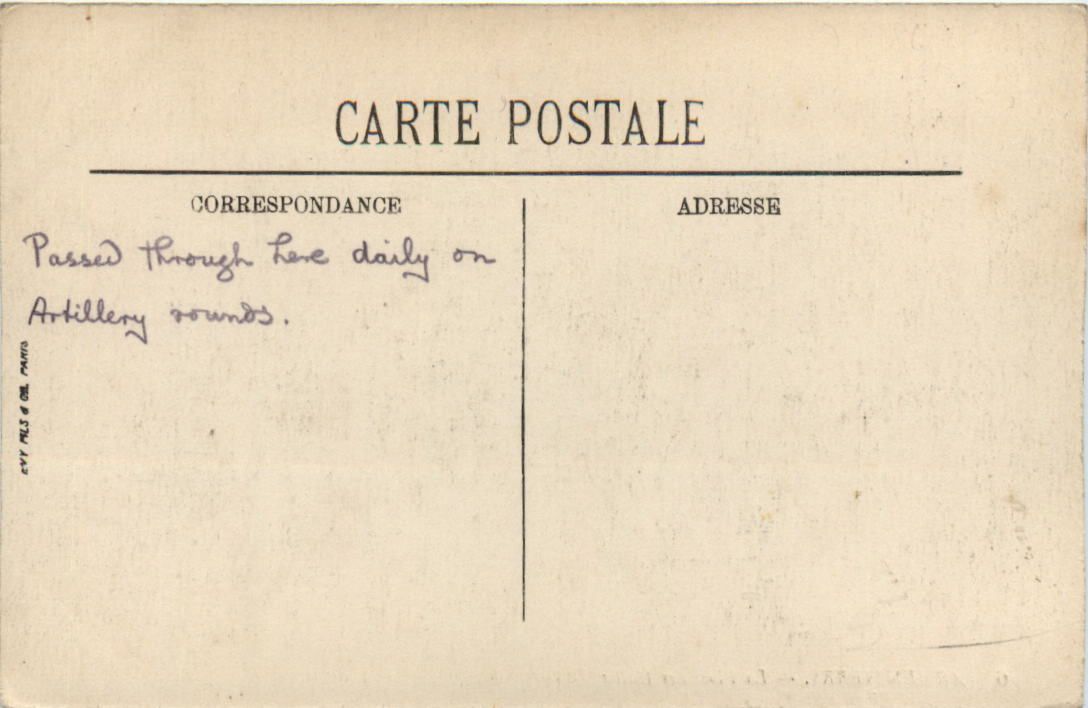 CARTE POSTALE
CORRESPONDANCE
ADRESSE
Passed through here daily on
Artillery rounds.
PARIS